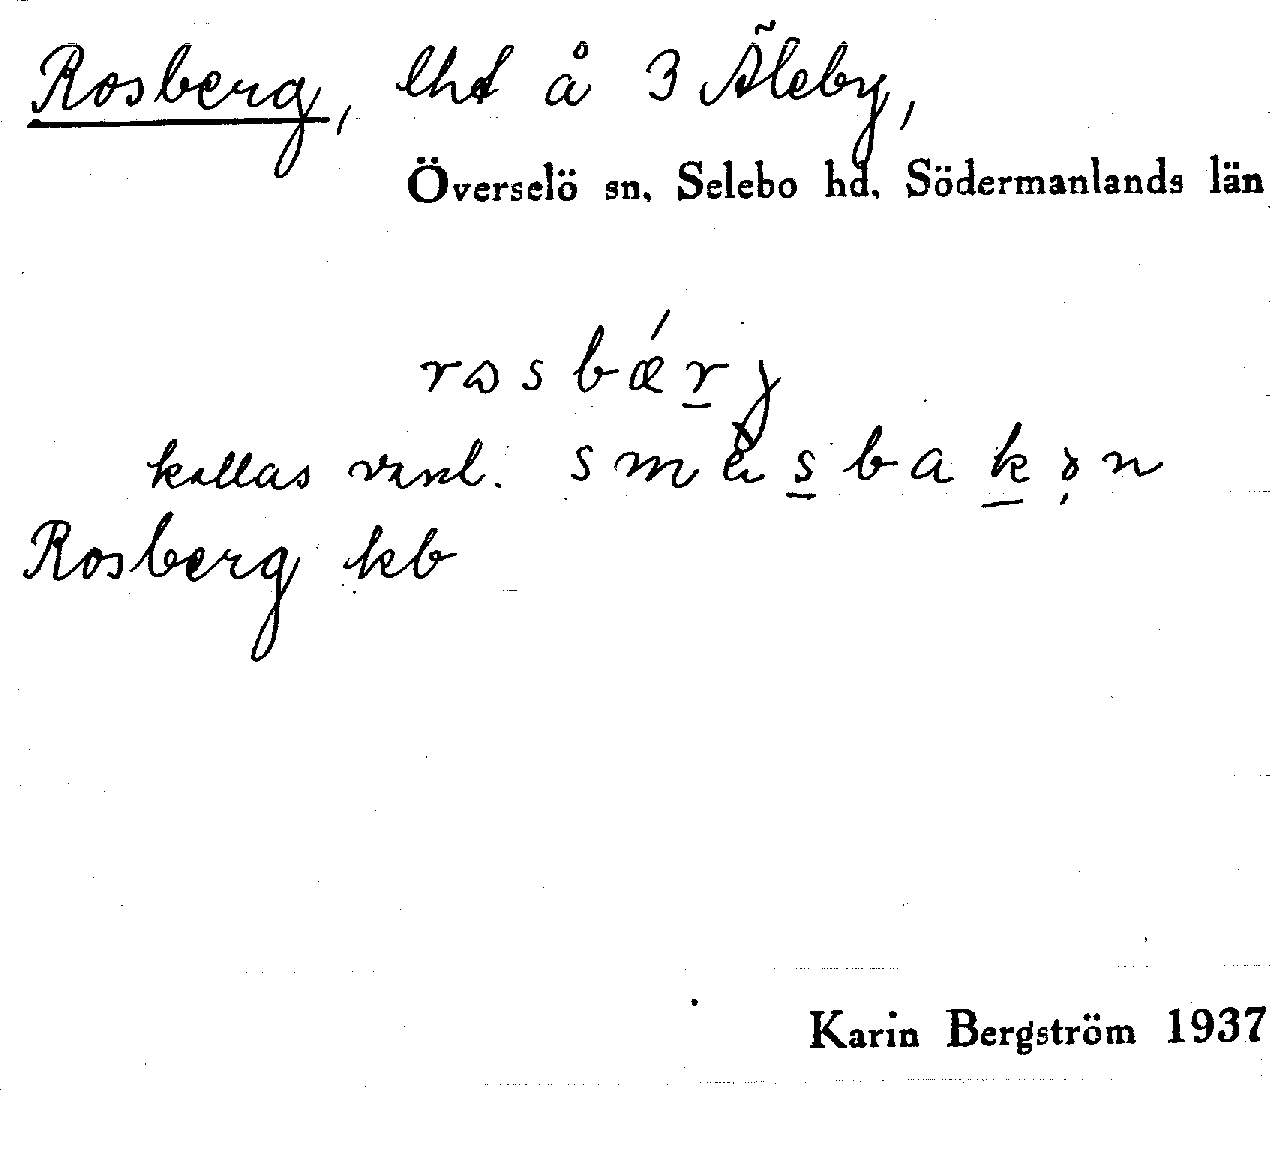 Rosberg, lht å 3 Äleby,
Överselö sn, Selebo hd, Södermanlands län
rωsbǽr̲j
kallas vanl. smè̊s̲bak̲ə̣n
Rosberg kb
Karin Bergström 1937